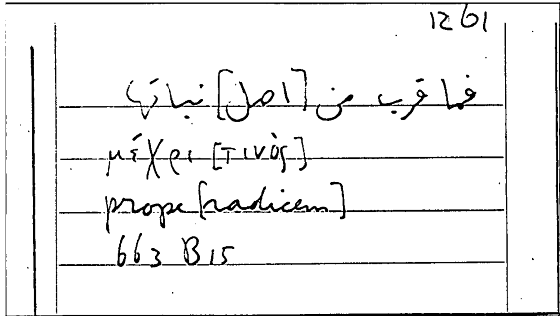 1261
فما قرب من [اصل] نباتها
μέχρι [τινὸς]
prope [radicem]
663 B 15